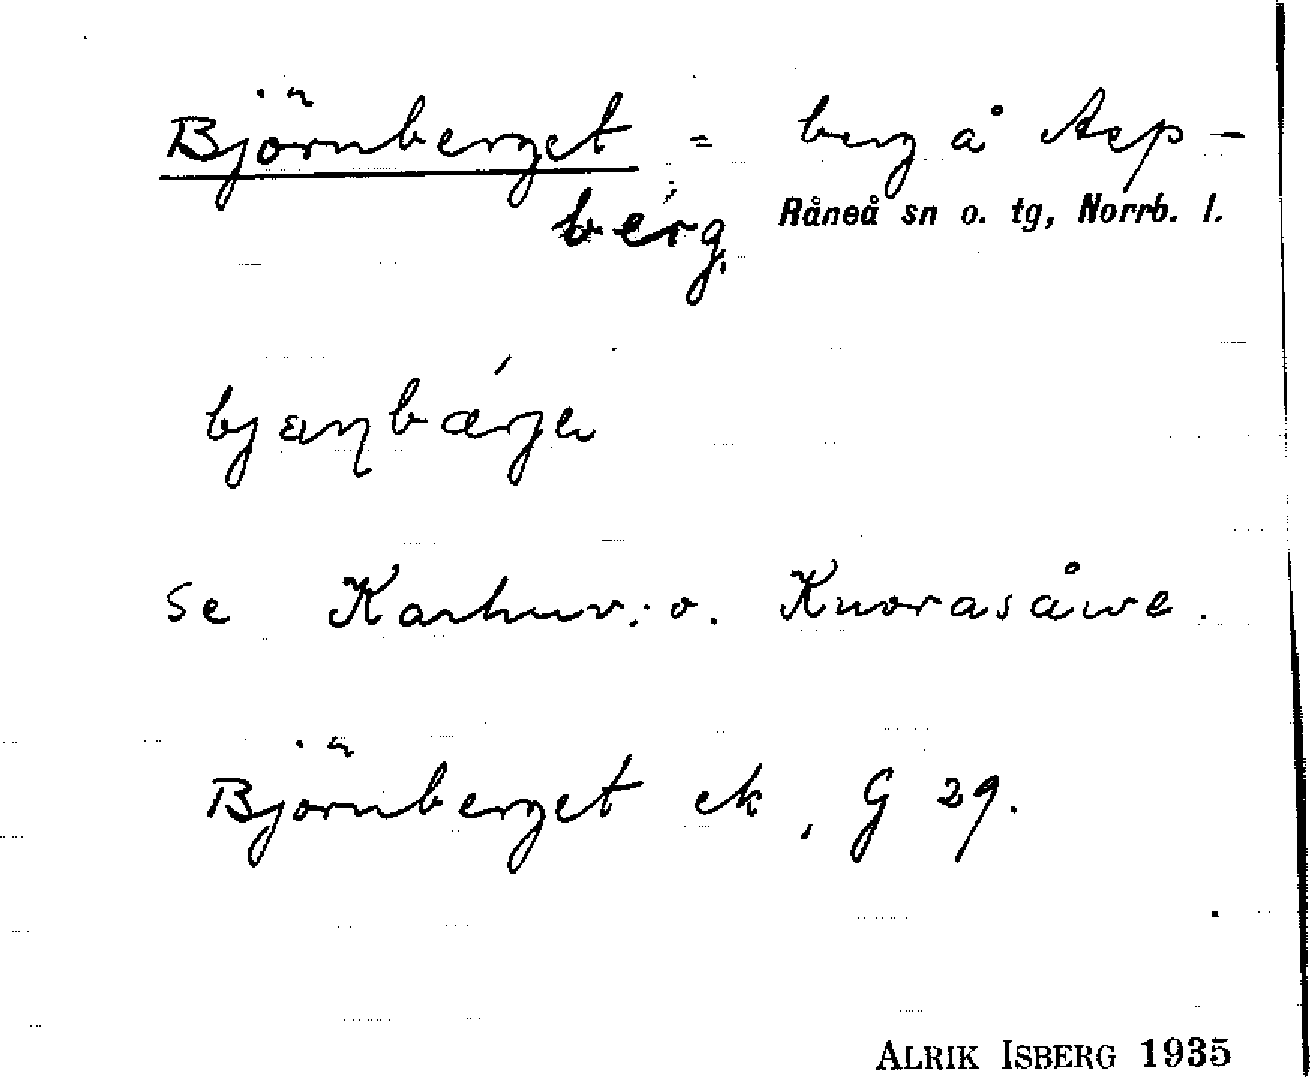 Björnberget = berg å Asp-
berg.
Råneå sn o. tg, Norrb. l.
se Karhuv. o. Knorasåive.
Björnberget ek, G 29.
ALRIK ISBERG 1935